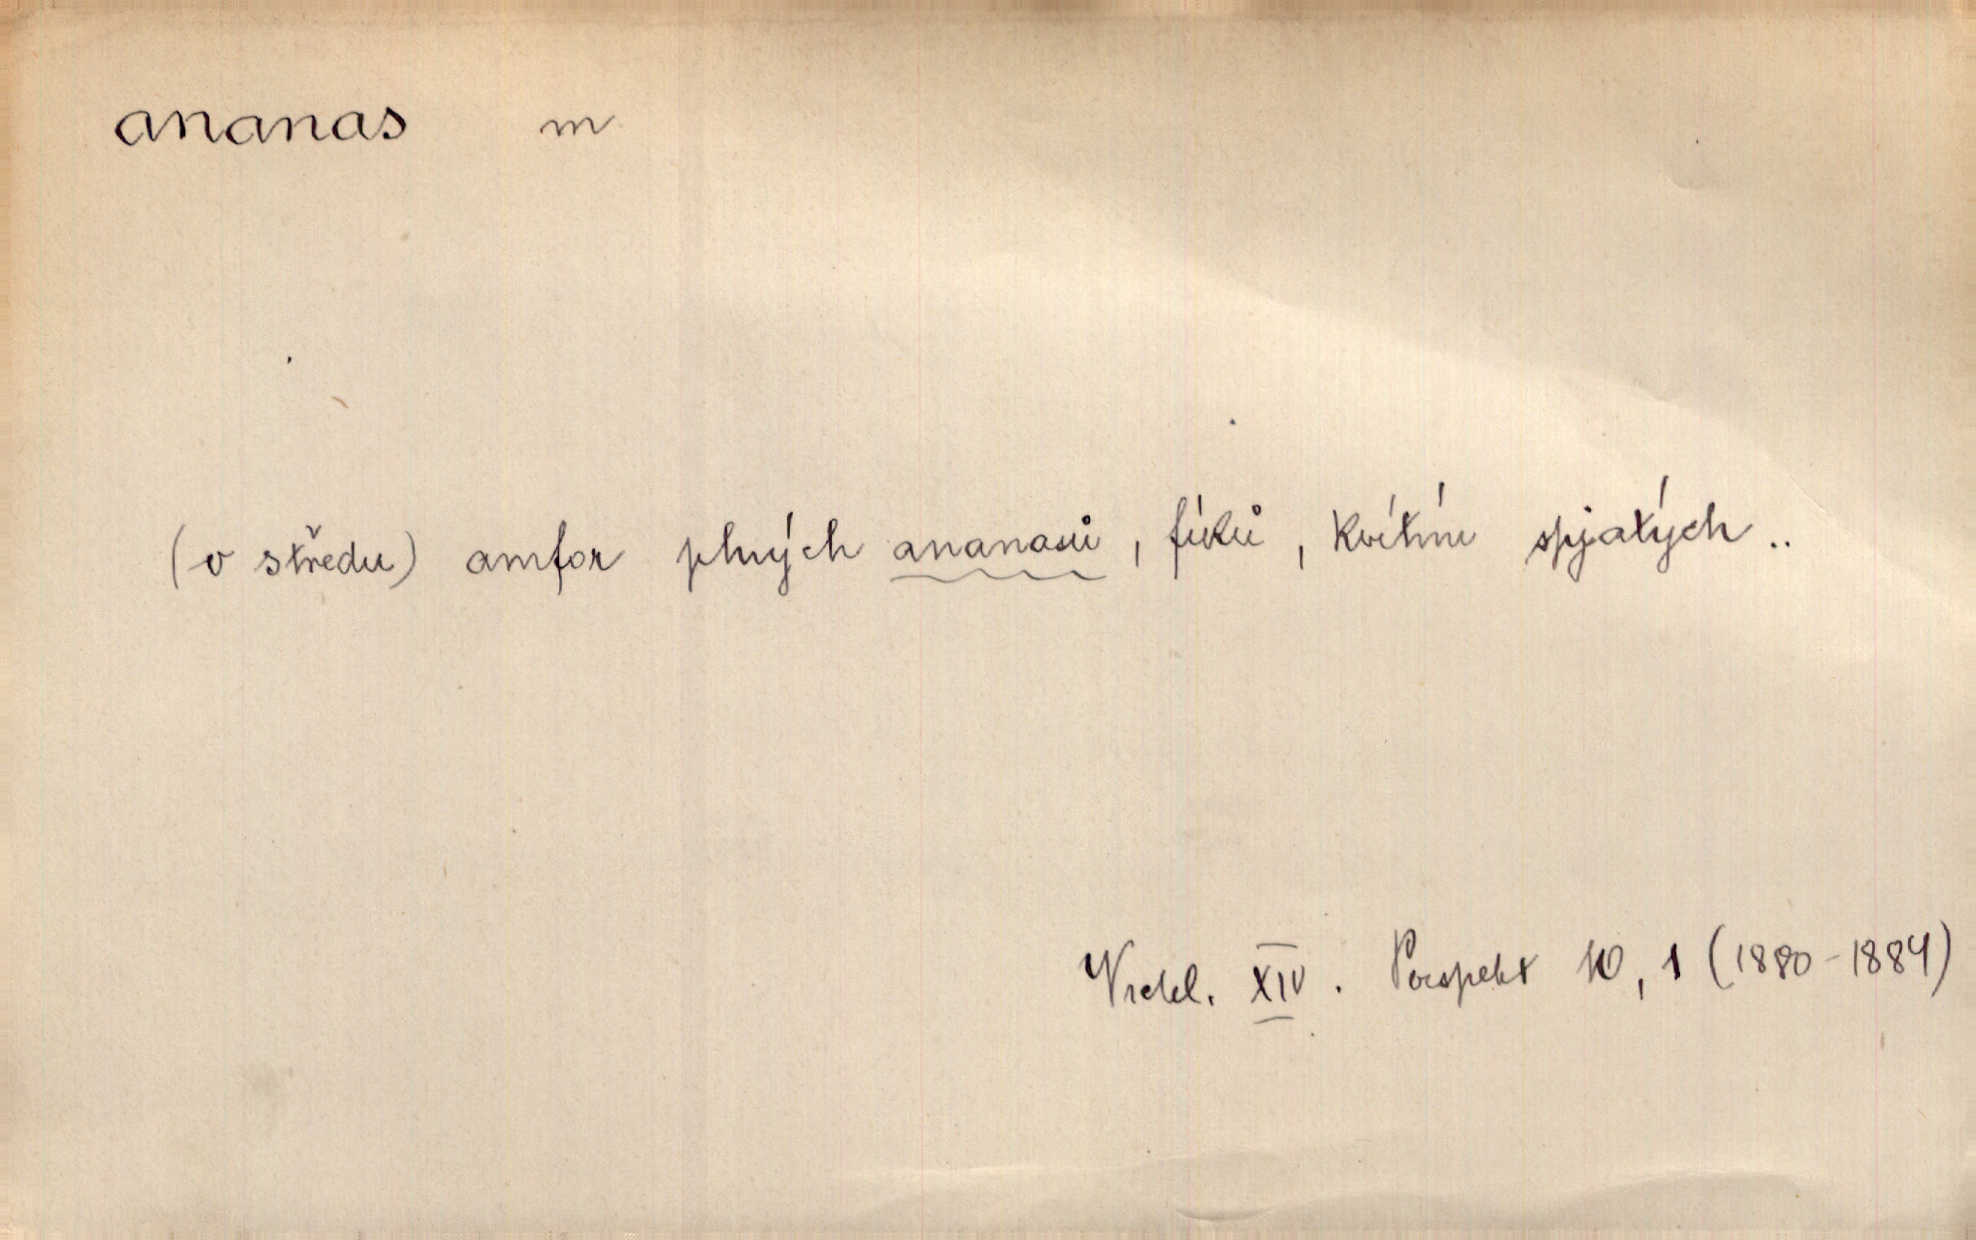 ananas m
(v středu) amfor plných ananasů, fíků, kvítím spjatých ..
Vrchl. XIV. Perspekt 10, 1 (1880-1884)